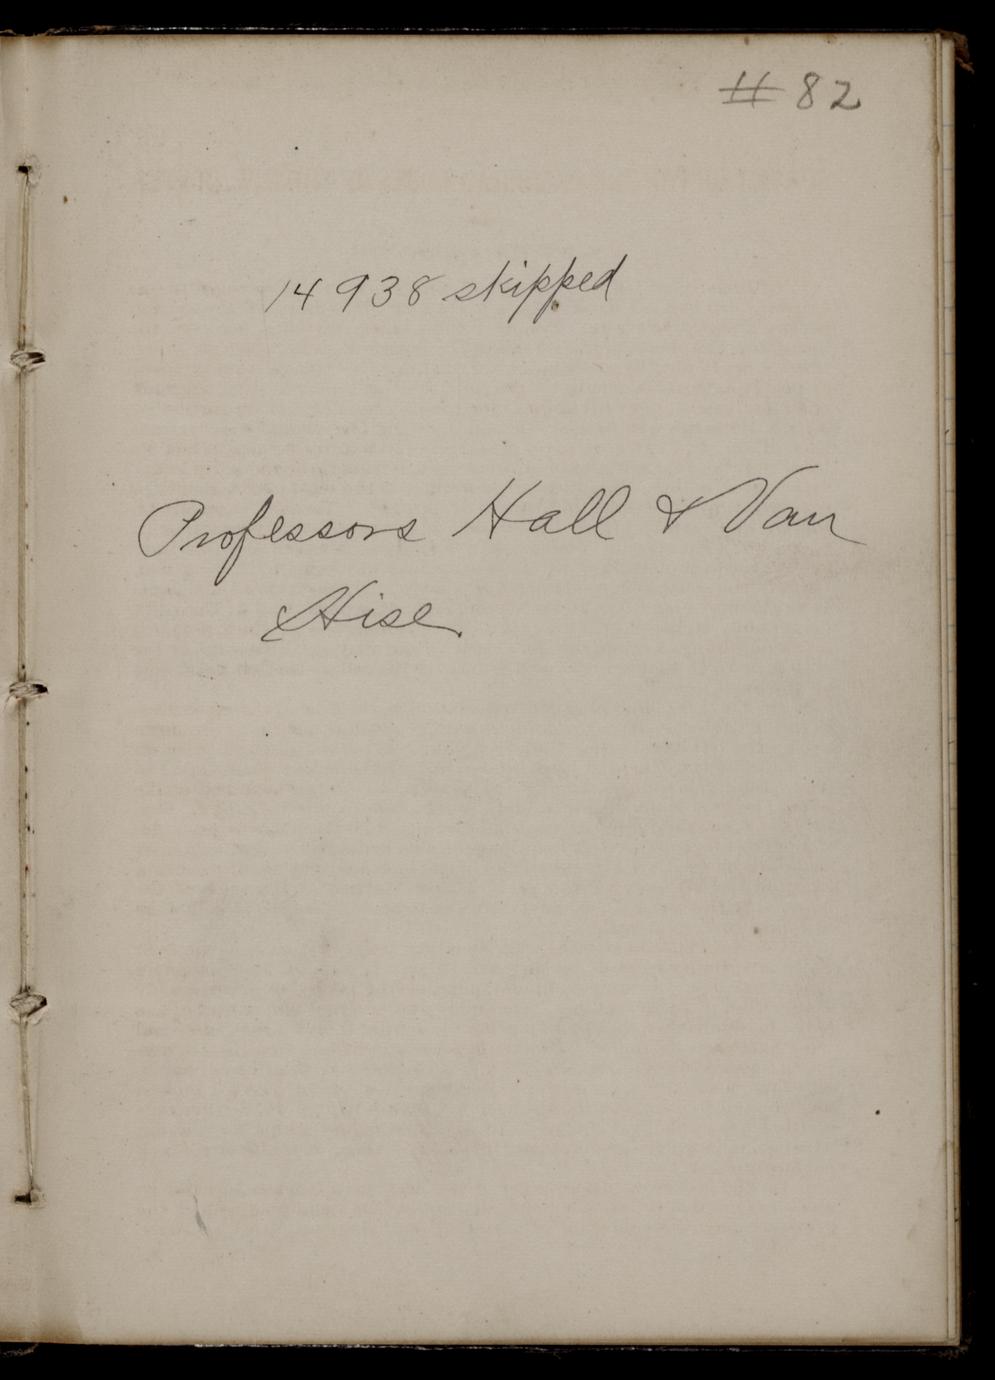 #82
14938 skipped
Professors Hall & Van
Hise